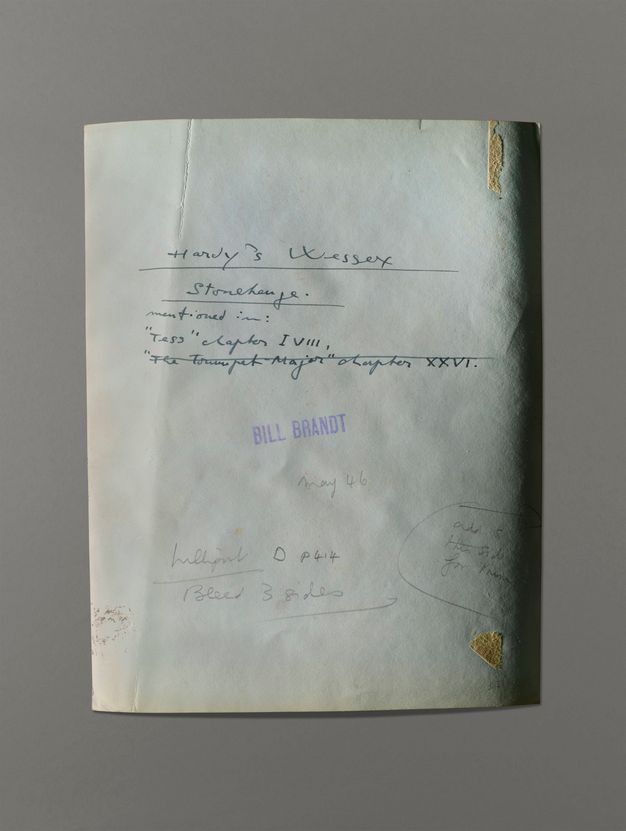 Hardy's Wessex
Stonehenge.
mentioned in:
"Tess" chapter IVIII,
"The Trumpet-Major" chapter XXVI.
BILL BRANDT
May 46
Lilliput D p414
Bleed 3 sides
add
the sid
for